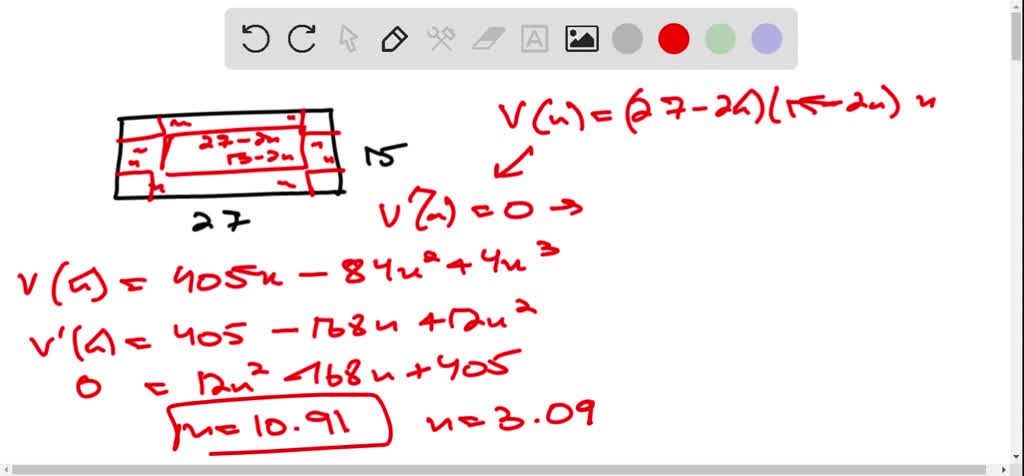 V(x) = (27-2x)(15-2x) x
x x
27-2x
15-2x
x x
x x
x x
15
27
V'(x) = 0 →
V(x) = 405x - 84x² + 4x³
V'(x) = 405 - 168x + 12x²
0 = 12x² - 168x + 405
x = 10.91 x = 3.09
A